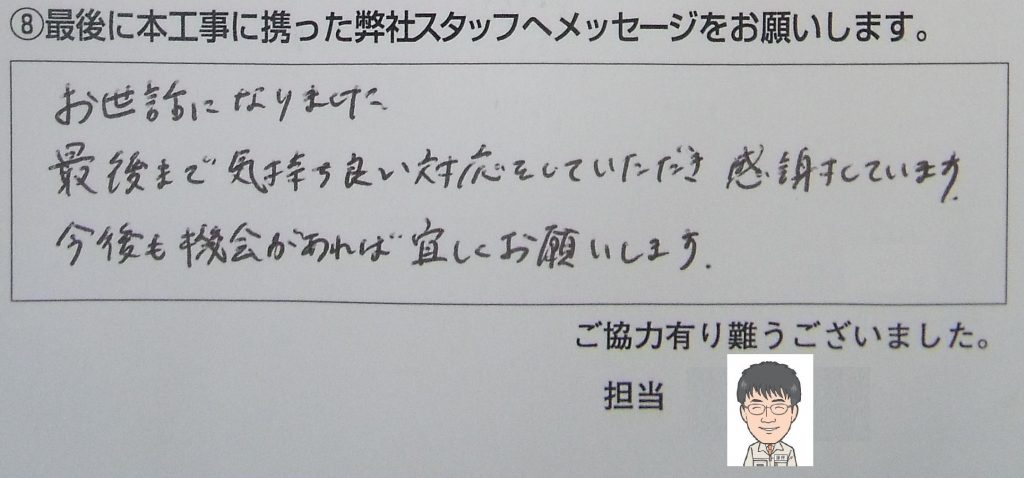 ⑧最後に本工事に携った弊社スタッフへメッセージをお願いします。
お世話になりました
最後まで気持ち良い対応をしていただき 感謝しています.
今後も機会があれば 宜しくお願いします.
ご協力有り難うございました。
担当